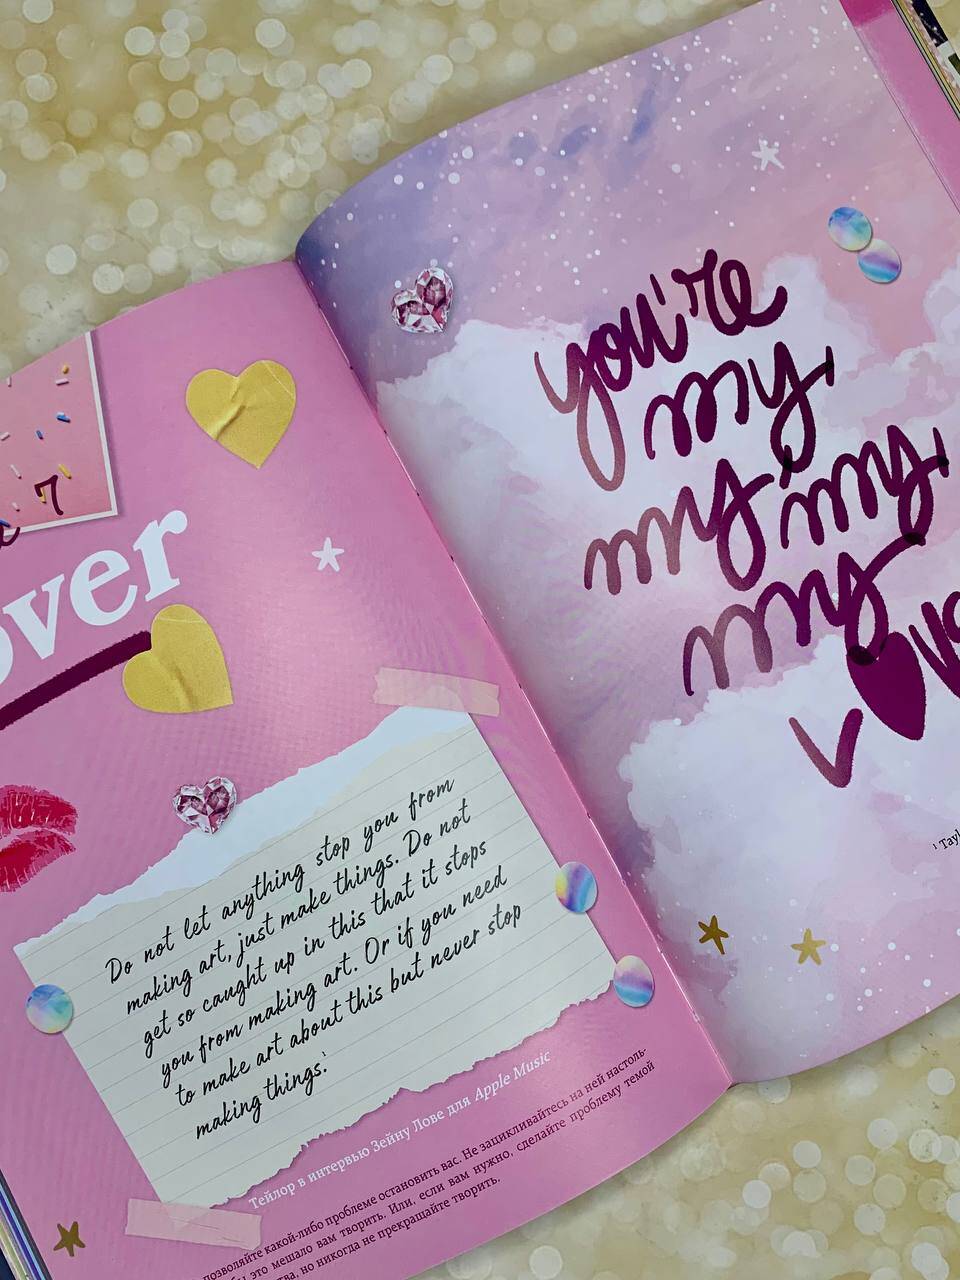 7
over
Do not let anything stop you from
making art, just make things. Do not
get so caught up in this that it stops
you from making art. Or if you need
to make art about this but never stop
making things.¹
Тейлор в интервью Зейну Лове для Apple Music
позволяйте какой-либо проблеме остановить вас. Не зацикливайтесь на ней настоль-
бы это мешало вам творить. Или, если вам нужно, сделайте проблему темой
но никогда не прекращайте творить.
you're
my,
my, my,
my
¹ Tayl